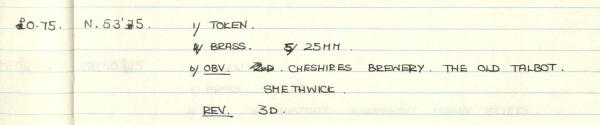 £0.75. N.53'75. 1/ TOKEN.
4/ BRASS. 5/ 25MM.
6/ OBV. CHESHIRES BREWERY. THE OLD TALBOT.
SMETHWICK.
REV. 3D.